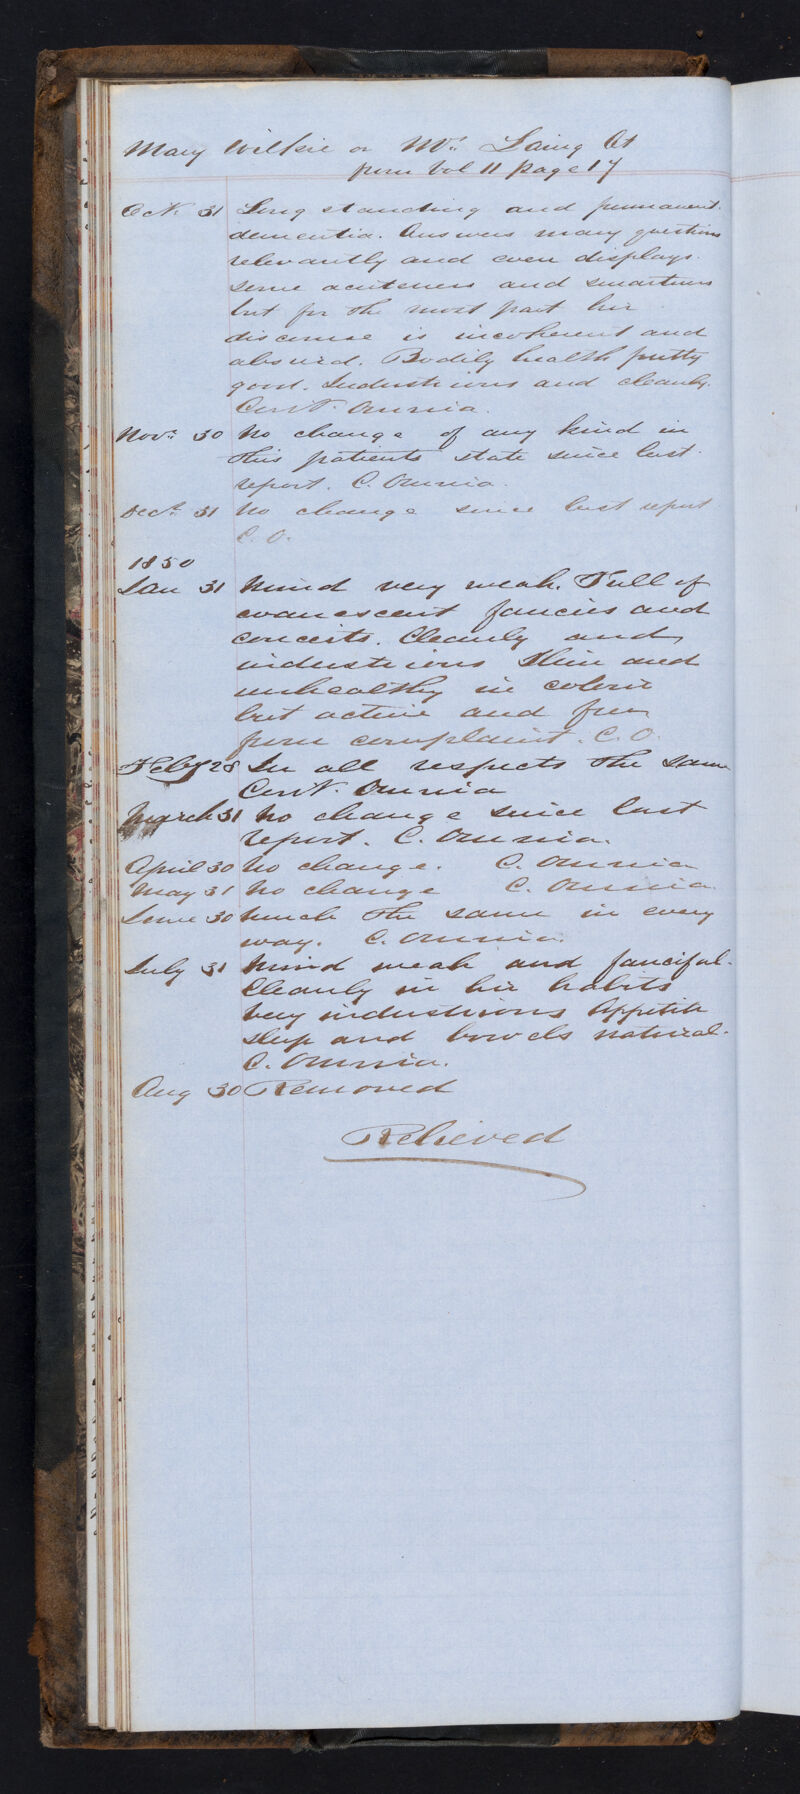 Mary Wilkie or Mrs. Laing Ct
from Vol 11 page 17
Oct. 31 Long standing and permanent
dementia. Answers many questions
relevantly and even displays
some acuteness and smartness
but for the most part her
discourse is incoherent and
absurd. Bodily health pretty
good. Industrious and cleanly.
Cont. Omnia.
Novr. 30 No change of any kind in
this patients state since last
report. C. Omnia.
Decr. 31 No change since last report
C. O.
1850
Jan 31 Mind very weak. Full of
evanescent fancies and
conceits. Cleanly and
industrious Thin and
unhealthy in color
but active and free
from complaint. C. O.
Feby 28 In all respects the same
Cont. Omnia
March 31 No change since last
report. C. Omnia.
April 30 No change. C. Omnia
May 31 No change C. Omnia.
June 30 Much the same in every
way. C. Omnia.
July 31 Mind weak and fanciful.
Cleanly in her habits
Very industrious Appetite
sleep and bowels natural.
C. Omnia.
Aug 30 Removed
Relieved